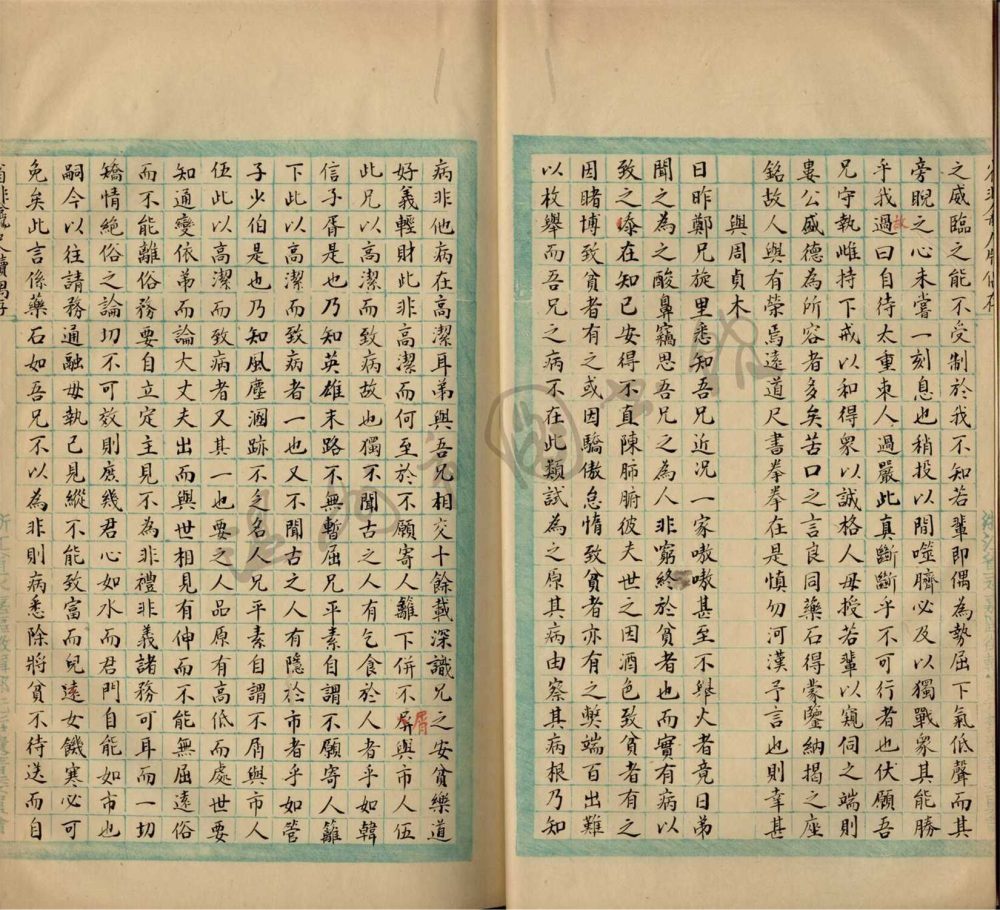 之威臨之能不受制於我不知若輩即偶為勢屈下氣低聲而其
旁睨之心未嘗一刻息也稍投以間噬臍必及以獨戰衆其能勝
乎我過故曰自待太重束人過嚴此真斷斷乎不可行者也伏願吾
兄守執雌持下戒以和得衆以誠格人毋授若輩以窺伺之端則
婁公盛德為所容者多矣苦口之言良同藥石得蒙鑒納揭之座
銘故人與有榮焉遠道尺書拳拳在是慎勿河漢予言也則幸甚
與周貞木
日昨鄭兄旋里悉知吾兄近況一家嗷嗷甚至不舉火者竟日弟
聞之為之酸鼻竊思吾兄之為人非窮終於貧者也而實有病以
致之泰在知己安得不直陳肺腑彼夫世之因酒色致貧者有之
因賭博致貧者有之或因驕傲怠惰致貧者亦有之弊端百出難
以枚舉而吾兄之病不在此類試為之原其病由察其病根乃知
病非他病在高潔耳弟與吾兄相交十餘載深識兄之安貧樂道
好義輕財此非高潔而何至於不願寄人籬下併不屑與市人伍
此兄以高潔而致病故也獨不聞古之人有乞食於人者乎如韓
信子胥是也乃知英雄末路不無暫屈兄平素自謂不願寄人籬
下此以高潔而致病者一也又不聞古之人有隱於市者乎如管
子少伯是也乃知風塵溷跡不乏名人兄平素自謂不屑與市人
伍此以高潔而致病者又其一也要之人品原有高低而處世要
知通變依弟而論大丈夫出而與世相見有伸而不能無屈遠俗
而不能離俗務要自立定主見不為非禮非義諸務可耳而一切
矯情絕俗之論切不可效則庶幾君心如水而君門自能如市也
嗣今以往請務通融毋執己見縱不能致富而兒逺女饑寒必可
免矣此言係藥石如吾兄不以為非則病悉除將貧不待送而自